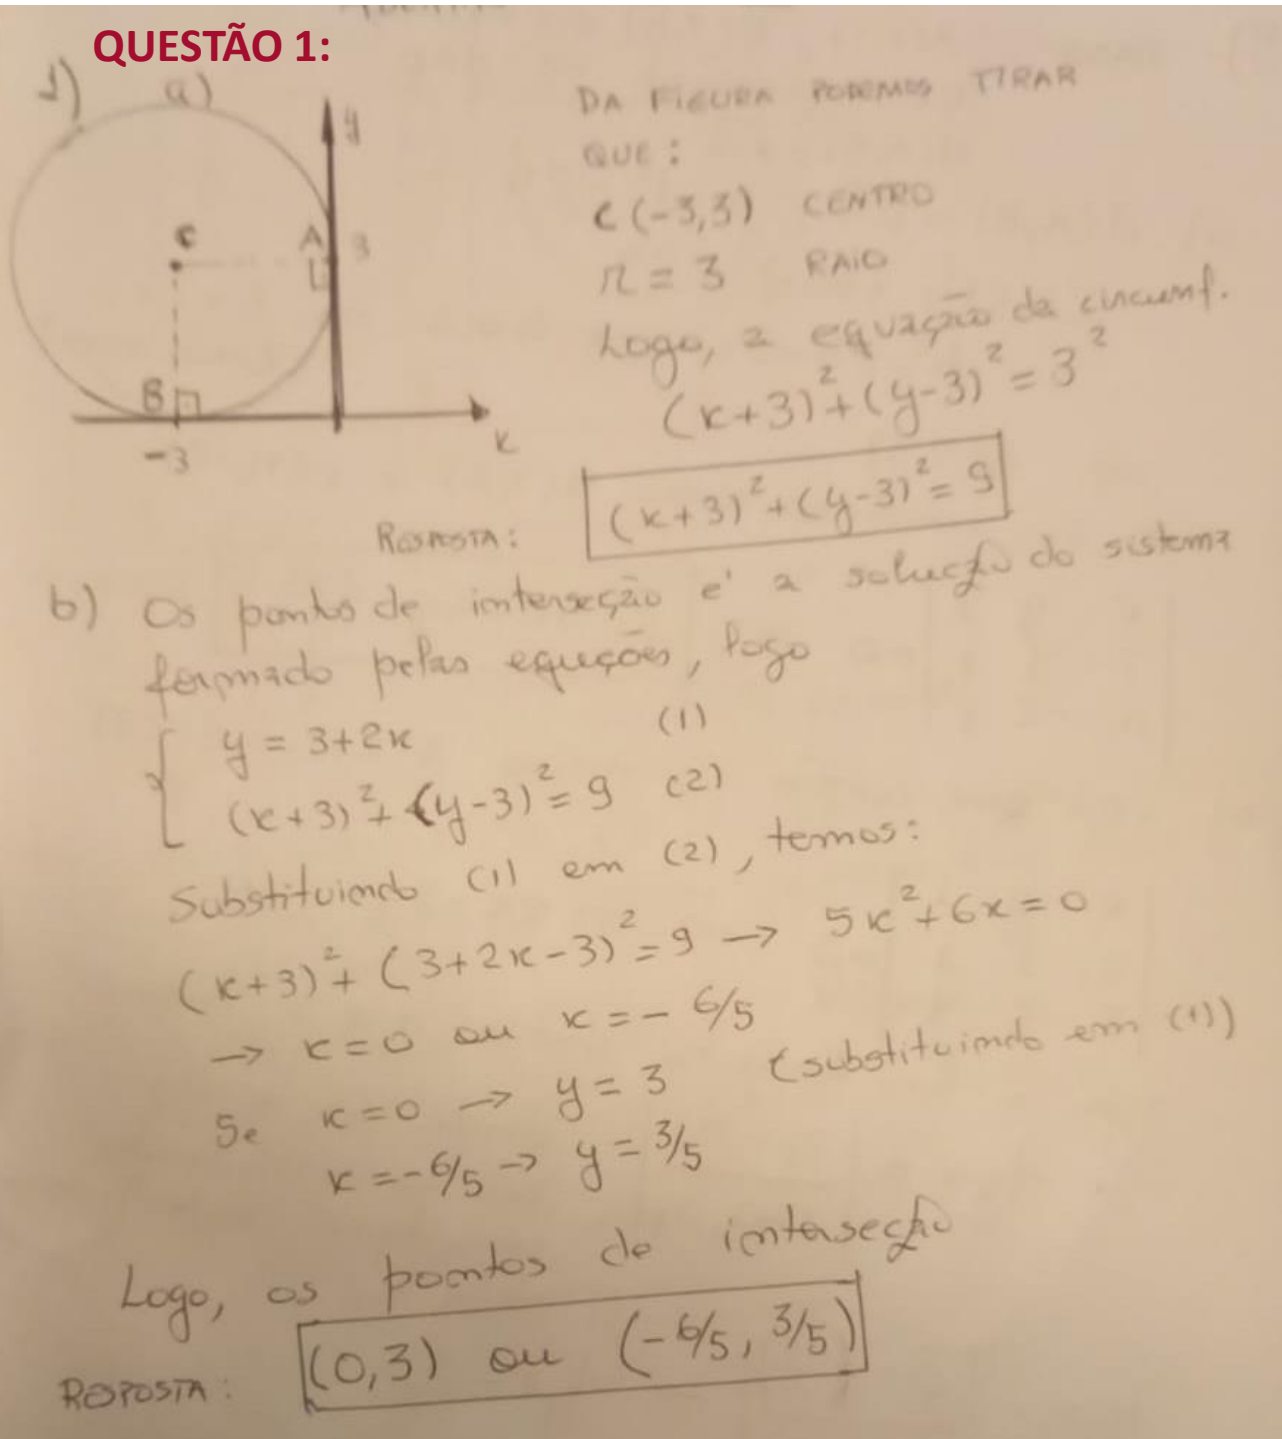 QUESTÃO 1:
1) a)
y
C
A 3
B
-3
x
DA FIGURA PODEMOS TIRAR
QUE:
C(-3,3) CENTRO
r = 3 RAIO
Logo, a equação da circunf.
(x+3)²+(y-3)²=3²
RESPOSTA: (x+3)²+(y-3)²=9
b) Os pontos de interseção é a solução do sistema
formado pelas equações, logo
y = 3+2x (1)
(x+3)²+(y-3)²=9 (2)
Substituindo (1) em (2), temos:
(x+3)²+(3+2x-3)²=9 → 5x²+6x=0
→ x=0 ou x=-6/5
Se x=0 → y=3 (substituindo em (1))
x=-6/5 → y=3/5
Logo, os pontos de interseção
RESPOSTA: (0,3) ou (-6/5, 3/5)